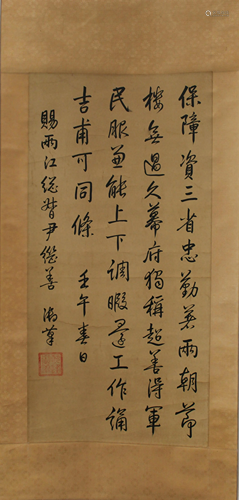 保障資三省忠勤著兩朝節
樓無過久幕府獨稱超善得軍
民服兼能上下調暇還工作誦
吉甫可同條 壬午春日
賜兩江總督尹繼善 御草